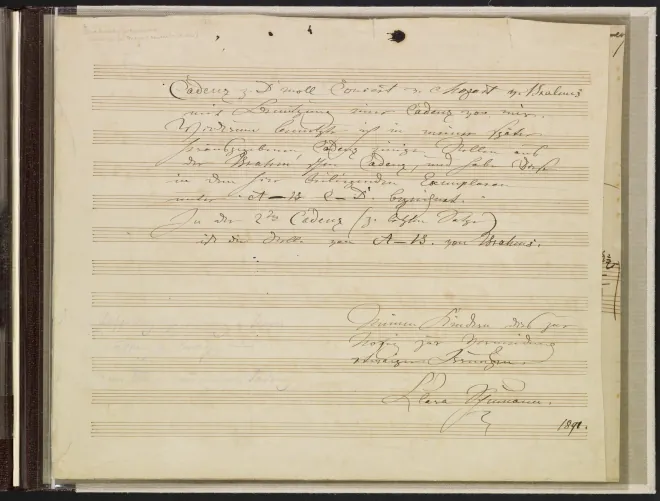 Cadenz z. D moll Concert v. Mozart v. Brahms
mit Benutzung einer Cadenz von mir.
Wiederum benutzte ich in meiner später
herausgegebenen Cadenz einige Stellen aus
der Brahms'schen Cadenz, und habe diese
in dem hier beiliegenden Exemplare
unter A–B C–D. bezeichnet.
In der 2ten Cadenz (z. letzten Satze)
ist die Stelle von A–B. von Brahms.
Meinen Kindern dies zur
Notiz zur Vermeidung
etwaiger
Clara Schumann.
1891.